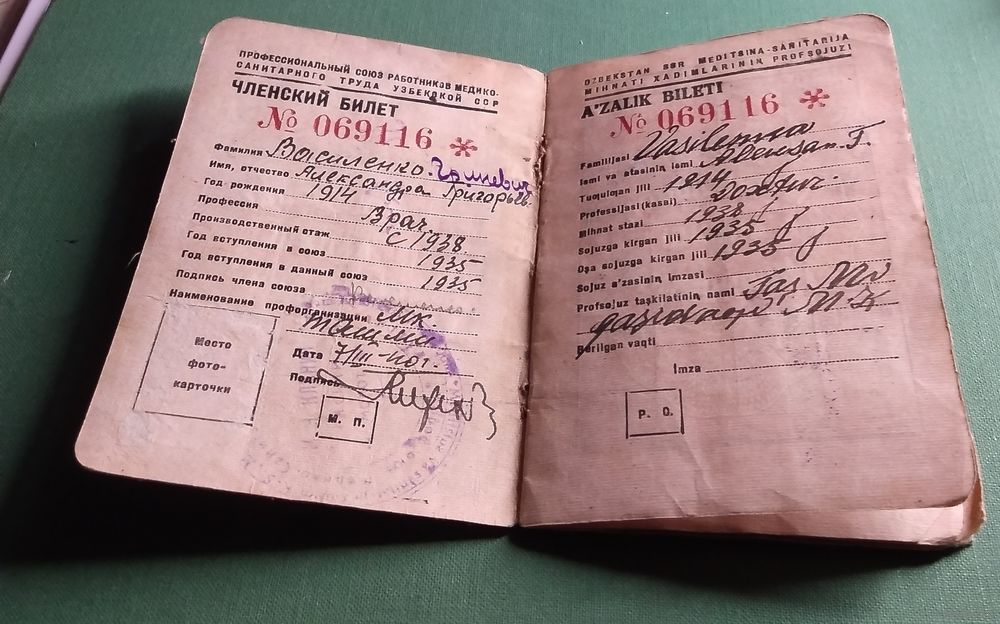 ПРОФЕССИОНАЛЬНЫЙ СОЮЗ РАБОТНИКОВ МЕДИКО-
САНИТАРНОГО ТРУДА УЗБЕКСКОЙ ССР
ЧЛЕНСКИЙ БИЛЕТ
№ 069116 *
Фамилия Василенко
Имя, отчество Александра Григорьев.
Год рождения 1914
Профессия Врач.
Производственный стаж с 1938
Год вступления в союз 1935
Год вступления в данный союз 1935
Подпись члена союза
Наименование проформганизации МК.
ТашМИ
Место
фото-
карточки
Дата 7/III-40г.
Подпись
М. П.
OZBEKSTAN SSR MEDITSINA-SANITARIJA
MIHNATI XADIMLARININ PROFSOJUZI
A'ZALIK BILETI
№ 069116 *
Familijasi
Ismi va atasinin ismi
Tuoqulqan jili 1914
Professijasi (kasai) Doxtur.
Mihnat stazi 1938
Sojuzga kirgan jili 1935
Oşa sojuzga kirgan jili 1935
Sojuz a'zasinin imzasi
Profsojuz taşkilatinin nami Taş
Berilgan vaqti
Imza
P. O.